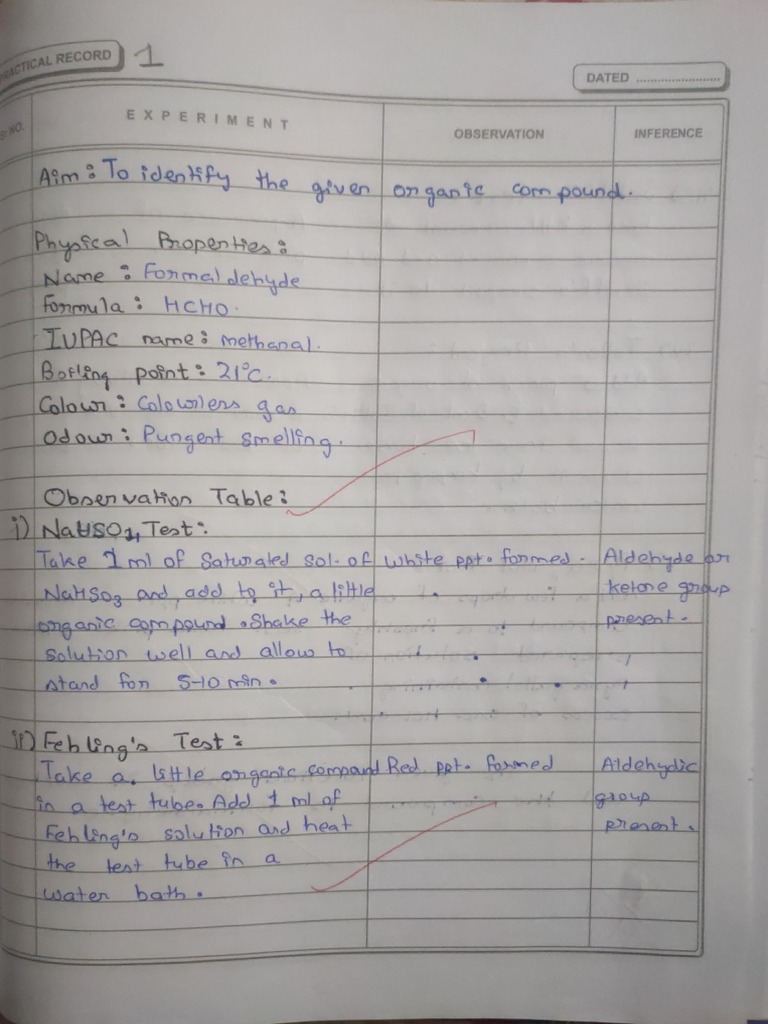 PRACTICAL RECORD 1
DATED
Sr NO. EXPERIMENT OBSERVATION INFERENCE
Aim: To identify the given organic compound.
Physical Properties:
Name: Formaldehyde
Formula: HCHO.
IUPAC name: methanal.
Boiling point: 21°C.
Colour: Colourless gas
Odour: Pungent smelling.
Observation Table:
i) NaHSO3 Test:
Take 1 ml of Saturated sol. of White ppt. formed. Aldehyde or
NaHSO3 and add to it, a little ketone group
organic compound. Shake the present.
solution well and allow to
stand for 5-10 min.
ii) Fehling's Test:
Take a little organic compound Red ppt. formed Aldehydic
in a test tube. Add 1 ml of group
Fehling's solution and heat present.
the test tube in a
water bath.